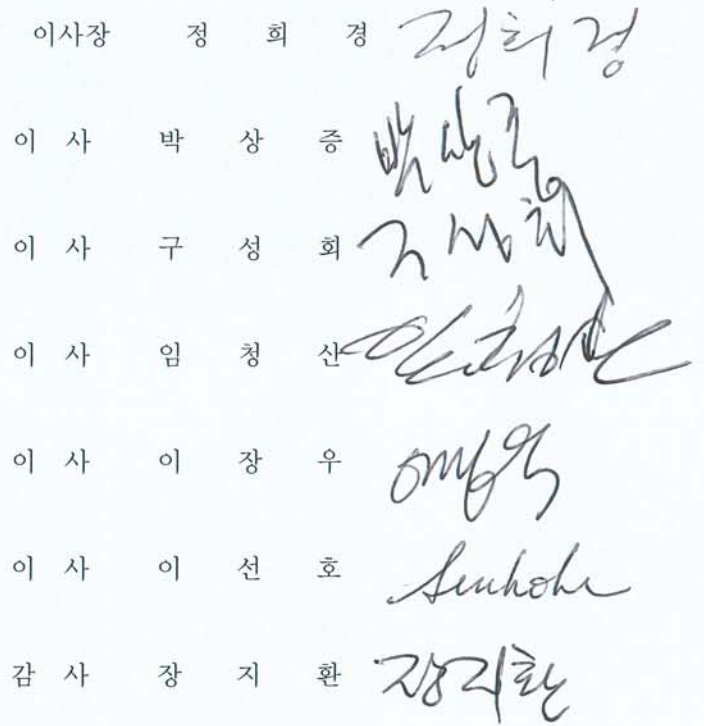 이사장 정 희 경 정희경
이 사 박 상 증 박상증
이 사 구 성 회 구성회
이 사 임 청 산 임청산
이 사 이 장 우
이 사 이 선 호
감 사 장 지 환 장지환